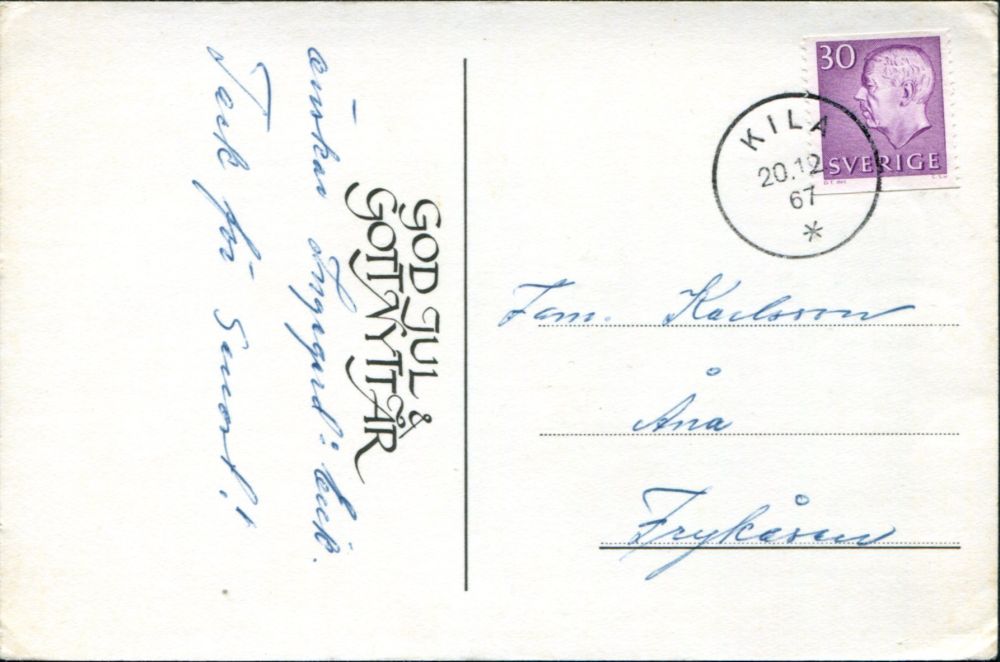 GOD JUL &
GOTT NYTT ÅR
önskar Ingegerd
Tack för Senast!
30
SVERIGE
KILA
20.12
67
*
Fam. Karlsson
Åna
Frykåsen